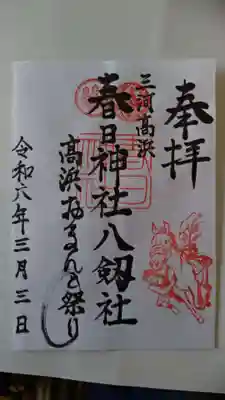 奉拝
三河高浜
春日神社八劔社
高浜おまんと祭り
令和六年三月三日